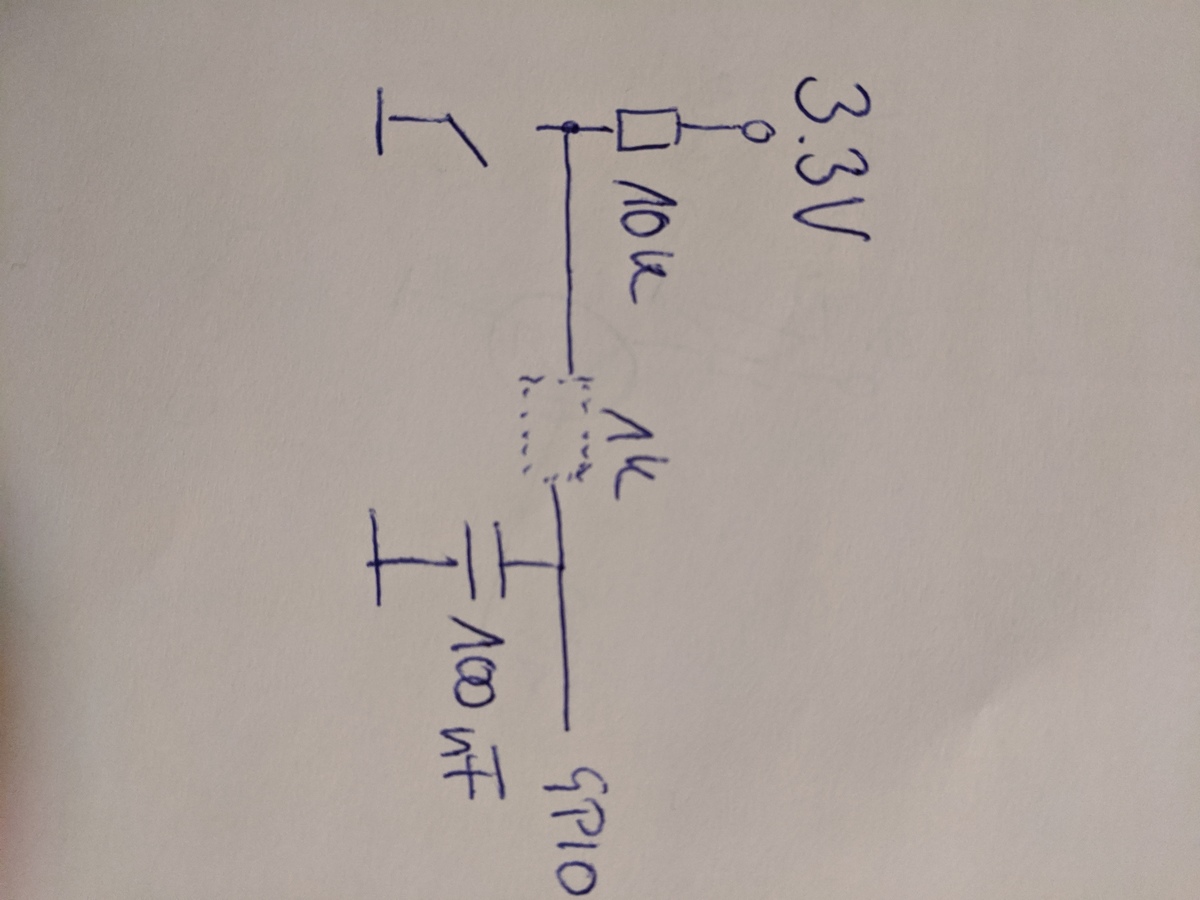 3.3V
10k
1k
100nF
GPIO